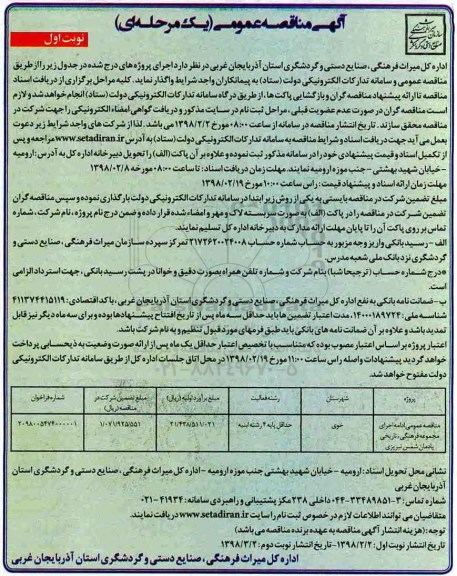 آگهی مناقصه عمومی (یک مرحله‌ای)
نوبت اول
اداره کل میراث فرهنگی، صنایع دستی و گردشگری استان آذربایجان غربی در نظر دارد اجرای پروژه های درج شده در جدول زیر را از طریق
مناقصه عمومی و سامانه تدارکات الکترونیکی دولت (ستاد) به پیمانکاران واجد شرایط واگذار نماید. کلیه مراحل برگزاری از دریافت اسناد
مناقصه تا ارائه پیشنهاد مناقصه گران و بازگشایی پاکت ها، از طریق درگاه سامانه تدارکات الکترونیکی دولت (ستاد) انجام خواهد شد و لازم
است مناقصه گران در صورت عدم عضویت قبلی، مراحل ثبت نام در سایت مذکور و دریافت گواهی امضاء الکترونیکی را جهت شرکت در
مناقصه محقق سازند. تاریخ انتشار مناقصه در سامانه از ساعت ۰۸:۰۰ مورخ ۱۳۹۸/۲/۲ می باشد. لذا از شرکت های واجد شرایط زیر دعوت
بعمل می آید جهت دریافت اسناد و شرایط مناقصه به سامانه تدارکات الکترونیکی دولت (ستاد) به آدرس www.setadiran.ir مراجعه و پس
از تکمیل اسناد و قیمت پیشنهادی خود را در سامانه مذکور ثبت نموده و علاوه بر آن پاکت (الف) را تحویل دبیرخانه اداره کل به آدرس: ارومیه
- خیابان شهید بهشتی - جنب موزه ارومیه نمایند. مهلت زمان دریافت اسناد: تا ساعت ۰۸:۰۰ مورخه ۱۳۹۸/۰۲/۰۸
مهلت زمان ارائه اسناد و پیشنهاد قیمت: راس ساعت ۱۰:۰۰ مورخ ۱۳۹۸/۰۲/۱۹
مبلغ تضمین شرکت در مناقصه بایستی به یکی از روش زیر ابتدا در سامانه تدارکات الکترونیکی دولت بارگذاری نموده و سپس مناقصه گران
تضمین شرکت در مناقصه را در پاکت (الف) به صورت دربسته لاک و مهر و امضاء شده قرار داده و ضمن درج نام پروژه، نام شرکت، شماره
تماس بر روی پاکت آن را تا پایان مهلت ارائه مدارک به دبیرخانه اداره کل تسلیم نمایند.
الف - رسید بانکی واریز وجه مزبور به حساب شماره حساب ۲۱۷۲۶۲۰۰۲۴۰۰۸ تمرکز سپرده سازمان میراث فرهنگی، صنایع دستی و
گردشگری نزد بانک ملی شعبه مدرس.
*درج شماره حساب (ترجیحا شبا) بنام شرکت و شماره تلفن همراه بصورت دقیق و خوانا در پشت رسید بانکی، جهت استرداد الزامی
است.
ب - ضمانت نامه بانکی به نفع اداره کل میراث فرهنگی، صنایع دستی و گردشگری استان آذربایجان غربی، با کد اقتصادی: ۴۱۱۳۷۴۴۱۵۱۱۹
شناسه ملی: ۱۴۰۰۰۱۸۹۷۲۴. مدت اعتبار تضمین ها باید حداقل سه ماه پس از تاریخ افتتاح پیشنهادها بوده و برای سه ماه دیگر نیز قابل
تمدید باشد و علاوه بر آن ضمانت نامه های بانکی باید طبق فرمهای مورد قبول تنظیم و به نام شرکت باشد.
اعتبار پروژه بر اساس اعتبار مصوب بوده که متناسب با تخصیص اعتبار حداقل یک ماه پس از ارائه صورت وضعیت به ذیحسابی پرداخت
خواهد گردید پیشنهادات واصله راس ساعت ۱۱:۰۰ مورخ ۱۳۹۸/۰۲/۱۹ در محل اتاق جلسات اداره کل از طریق سامانه تدارکات الکترونیکی
دولت مفتوح خواهد شد.
پروژه شهرستان رشته فعالیت مبلغ برآورد اولیه (ریال) مبلغ تضمین شرکت در مناقصه (ریال) شماره فراخوان
مناقصه عمومی ادامه اجرای مجموعه فرهنگی، تاریخی یادمان شمس تبریزی خوی حداقل پایه ۴ رشته ابنیه ۲۱/۴۳۸/۵۱۱/۰۲۱ ۱/۰۷۱/۹۲۵/۵۵۱ ۲۰۹۸۰۰۵۴۷۴۰۰۰۰۰۱
نشانی محل تحویل اسناد: ارومیه - خیابان شهید بهشتی جنب موزه ارومیه - اداره کل میراث فرهنگی، صنایع دستی و گردشگری استان
آذربایجان غربی
شماره تماس: ۳-۳۳۴۸۹۸۵۱-۰۴۴ داخلی ۲۳۸ مرکز پشتیبانی و راهبردی سامانه: ۴۱۹۳۴-۰۲۱
متقاضیان می توانند اطلاعات لازم در خصوص ثبت نام را سایت www.setadiran.ir دریافت نمایند.
توجه: (هزینه انتشار آگهی مناقصه به عهده برنده مناقصه می باشد)
تاریخ انتشار نوبت اول: ۱۳۹۸/۲/۲ - تاریخ انتشار نوبت دوم: ۱۳۹۸/۳/۴
اداره کل میراث فرهنگی، صنایع دستی و گردشگری استان آذربایجان غربی